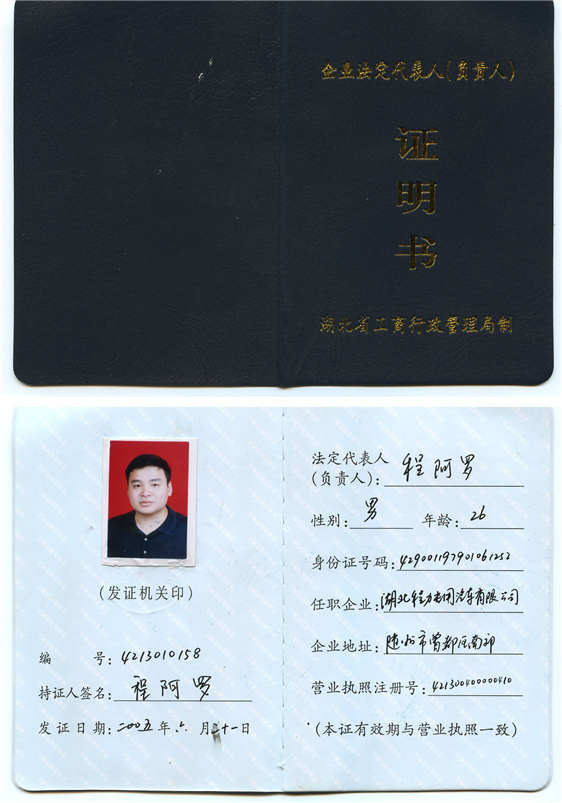 企业法定代表人(负责人)
证
明
书
湖北省工商行政管理局制
(发证机关印)
编 号: 4213010158
持证人签名: 程阿罗
发证日期: 二00五年六月三十一日
法定代表人
(负责人): 程阿罗
性别: 男 年龄: 26
身份证号码: 429001197901061252
任职企业: 湖北程力专用汽车有限公司
企业地址: 随州市曾都区南郊
营业执照注册号: 4213004000000410
(本证有效期与营业执照一致)